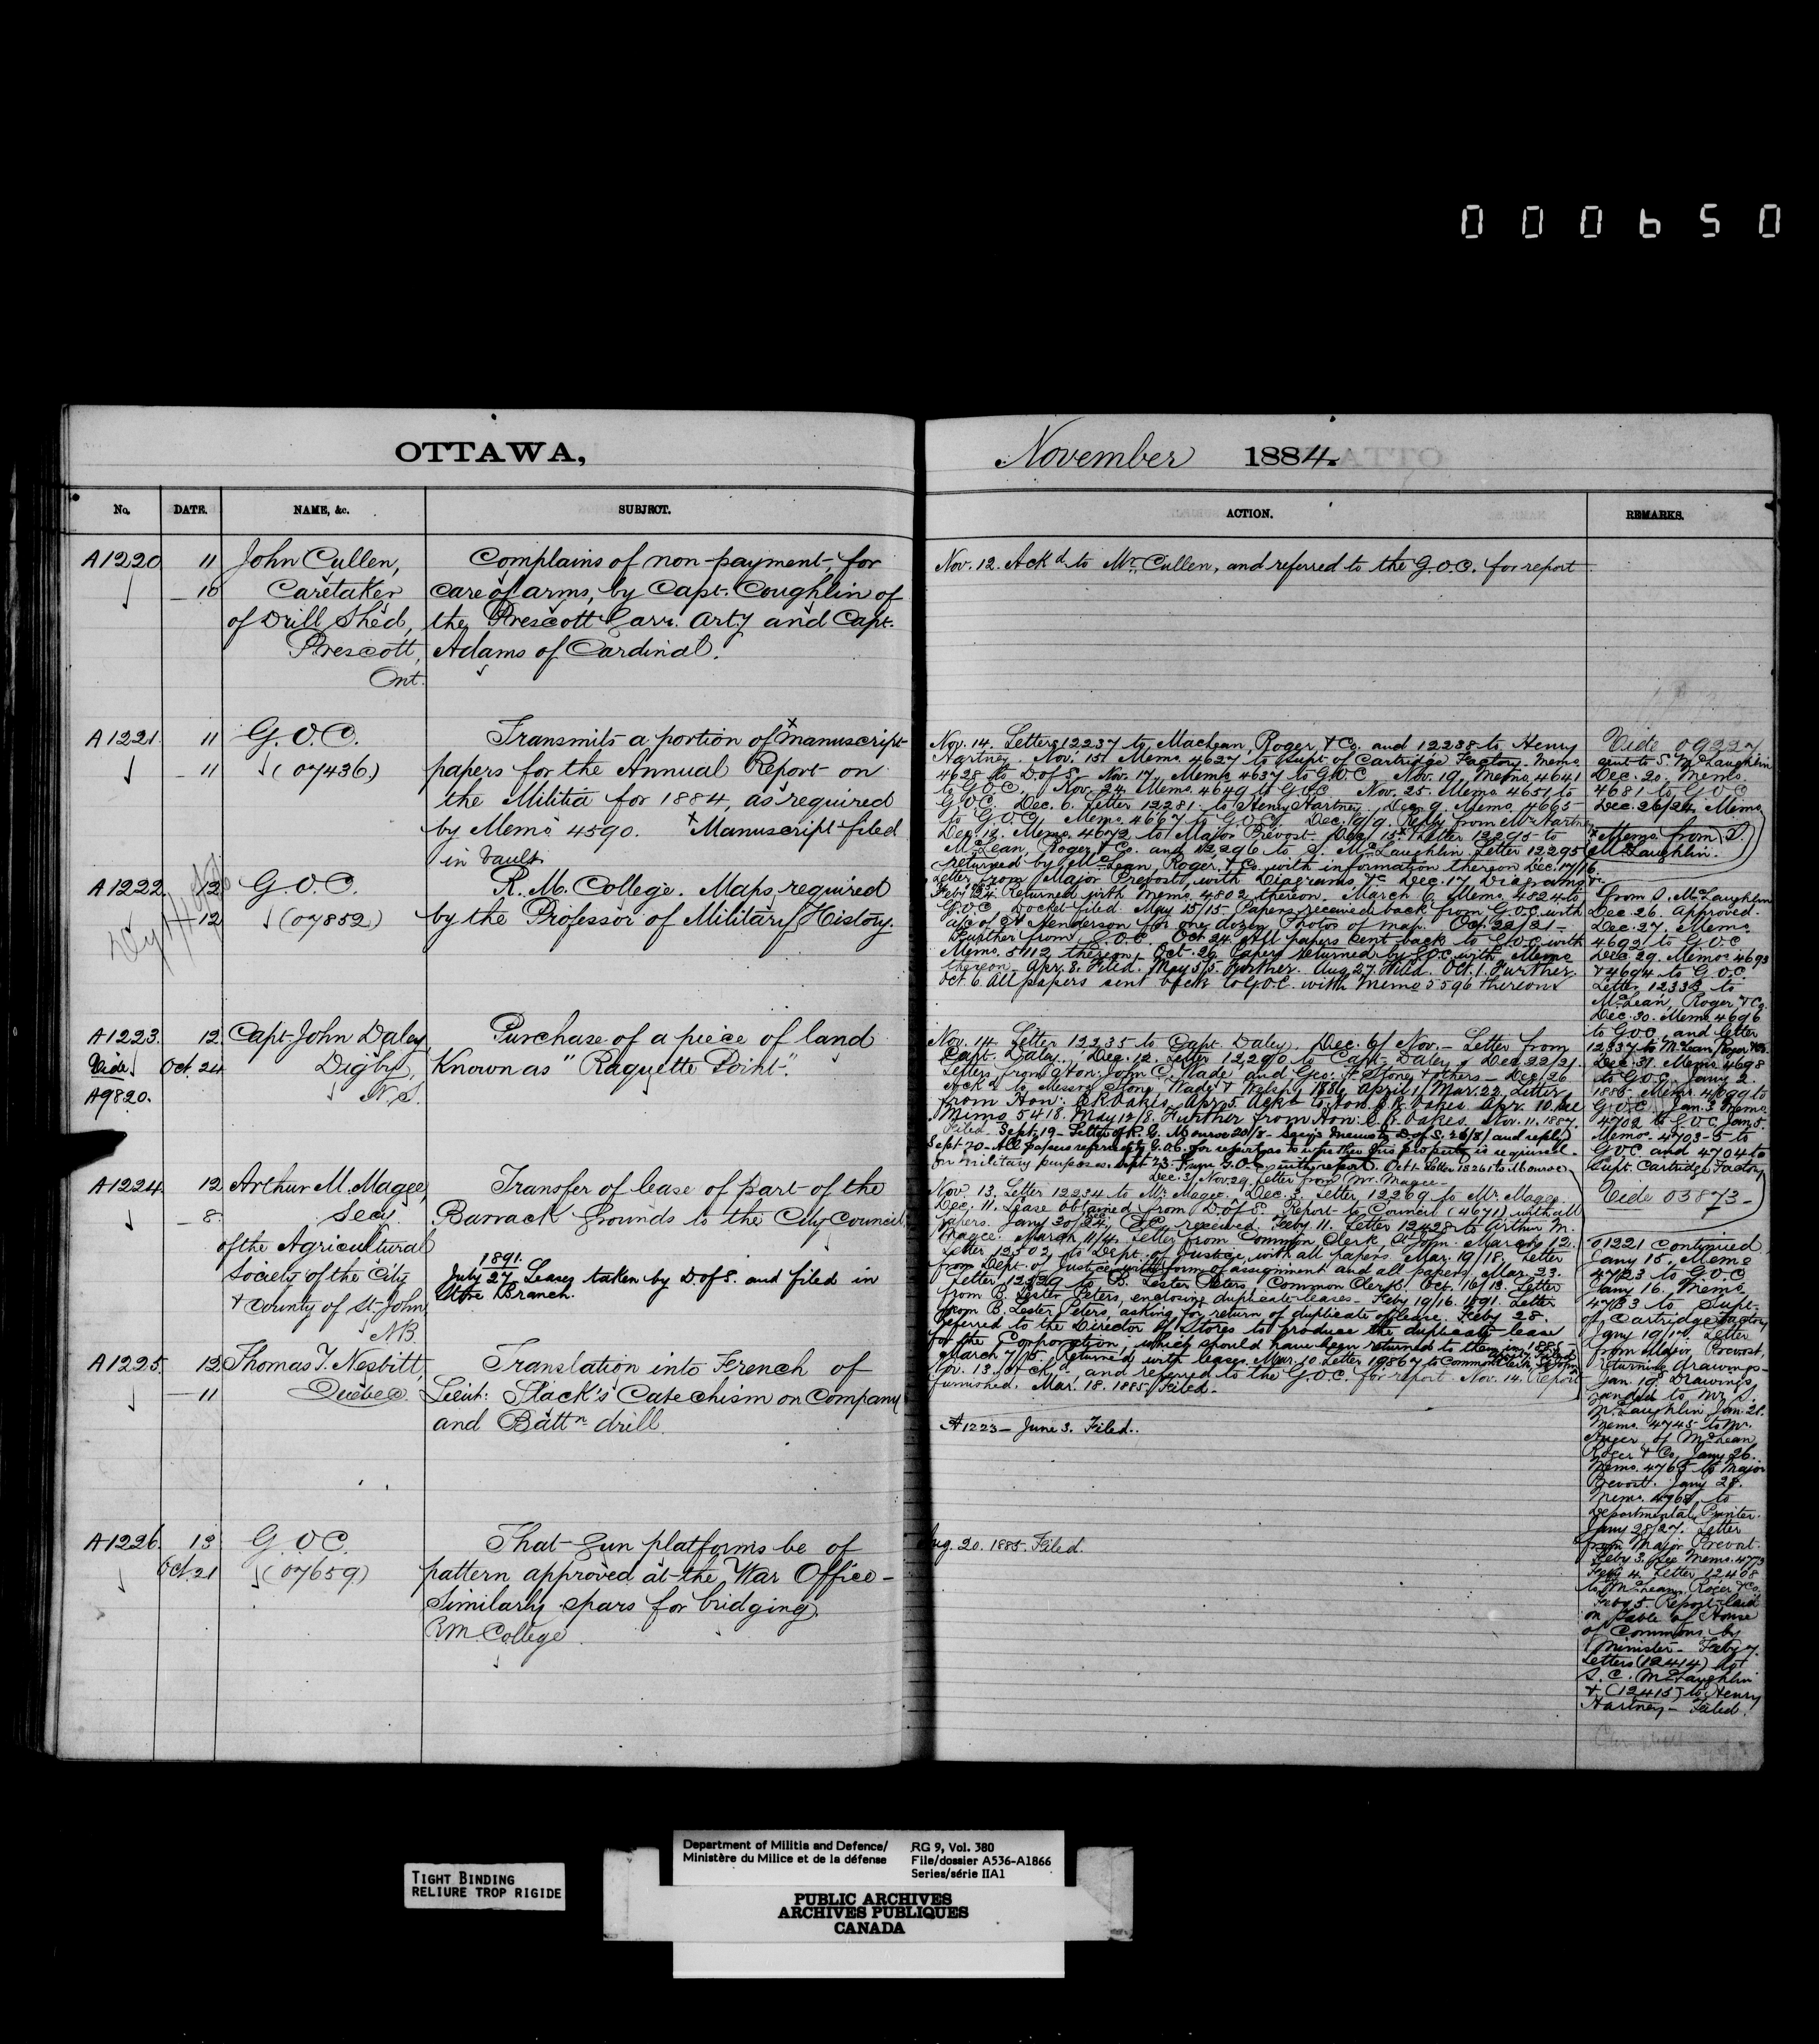 000650
OTTAWA,
No. DATE. NAME, &c. SUBJECT.
A1220 11 John Cullen, Complains of non-payment, for
10 Caretaker care of arms, by Capt. Coughlin of
of Drill Shed, the Prescott Garr. Arty and Capt.
Prescott, Adams of Cardinal.
Ont.
A1221. 11 G.O.C. Transmits a portion of x manuscript
11 (07436) papers for the Annual Report on
the Militia for 1884, as required
by Memo 4590. x Manuscript filed
in Vault
A1222. 12 G.O.C. R.M. College. Maps required
12 (07852) by the Professor of Military History.
A1223. 12 Capt. John Daley, Purchase of a piece of land
Vide Oct. 24 Digby, Known as "Raquette Point".
A9820. N.S.
A1224 12 Arthur M. Magee, Transfer of lease of part of the
8. Secy. Barrack Grounds to the City Council
of the Agricultural
Society of the City 1891.
July 27 Leases taken by D. of S. and filed in
& County of St. John Store Branch.
N.B.
A1225. 12 Thomas J. Nesbitt, Translation into French of
11 Quebec. Lieut: Slack's Catechism on Company
and Battn drill.
A1226. 13 G.O.C. That gun platforms be of
Oct. 21 (07659) pattern approved at the War Office -
Similarly spars for bridging.
R.M. College
November 1884.
ACTION. REMARKS.
Nov. 12. Ackd to Mr. Cullen, and referred to the G.O.C. for report
Nov. 14. Letters 12237 to Maclean, Roger, & Co. and 12238 to Henry
Hartney. Nov. 15. Memo 4627 to Supt. of Cartridge Factory. Memo
4628 to D. of S. Nov. 17. Memo 4637 to G.O.C. Nov. 19. Memo 4641
to G.O.C. Nov. 24 Memo. 4649 to G.O.C. Nov. 25. Memo 4651 to
G.O.C. Dec. 6. Letter 12281 to Henry Hartney. Dec. 9. Memo. 4665
to G.O.C. Memo. 4667 to G.O.C. Dec. 19/9. Reply from Mr Hartney
Dec. 12. Memo. 4672 to Major Prevost. Dec. 15 Letter 12295 to
McLean, Roger, & Co. and 12296 to S. McLaughlin Letter 12295
returned by McLean, Roger, & Co. with information thereon Dec. 17/16
Letter from Major Prevost, with Diagrams, &c. Dec. 17. Diagrams
Returned with Memo. 4802 thereon. March 6. Memo. 4824 to
G.O.C. Docket filed. May 15/15 - Papers received back from G.O.C. with
a/c of Henderson for one dozen Photos of map. Oct. 22/21 -
Further from G.O.C. Oct. 24 All papers sent back to G.O.C. with
Memo. 5112 thereon. Oct. 29 Papers returned by G.O.C. with Memo
thereon. Apr. 8. Filed. May 5/5. Further. Aug. 27. Filed. Oct. 1. Further.
Oct. 6 All papers sent back to G.O.C. with Memo 5596 thereon.
Nov. 14. Letter 12235 to Capt. Daley. Dec. 6/ Nov. - Letter from
Capt. Daley. Dec. 12. Letter 12290 to Capt. Daley. Dec. 22/21.
Letters from Hon: John C. Wade and Geo. Stone & others - Dec. 26
Ackd to Messrs Stone, Wade & Welsh. 1886 April 1/Mar. 22. Letter
from Hon: Oakes. Apr. 5 Ackd to Hon. Oakes. Apr. 10. See
Memo 5418. May 12/8. Further from Hon: Oakes. Nov. 11. 1887.
Filed - Sept. 19 - Letter of R. G. Monroe 20/8 -
Sept. 20 - All papers referred to G.O.C. for report as to whether this property is required
for military purposes. Sept 23. From G.O.C. with report. Oct 1. Letter 18261 to Monroe
Dec. 3/ Nov. 29. Letter from Mr. Magee -
Nov. 13. Letter 12234 to Mr. Magee. Dec. 3. Letter 12269 to Mr. Magee.
Dec. 11. Lease obtained from D. of S. Report to Council (4671) with all
papers. Jany 30/24. O.C. received. Feby. 11. Letter 12428 to Arthur M.
Magee. March 11/4. Letter from Common Clerk St. John. March 12.
Letter 12502, to Dept. of Justice, with all papers. Mar. 19/18. Letter
from Dept. of Justice with form of assignment and all papers. Mar. 23.
Letter 12529 to B. Lester Peters, Common Clerk. Oct. 16/13. Letter
from B. Lester Peters, enclosing duplicate leases. Feby 19/16. 1891. Letter
from B. Lester Peters, asking for return of duplicate of lease. Feby 28.
Referred to the Director of Stores to produce the duplicate lease
for the Corporation, which should have been returned to them in 1885
March 7/5. Returned with leases. Mar. 10. Letter 19867 to Common Clerk, St John
Nov. 13. Ackd. and referred to the G.O.C. for report. Nov. 14. Report
furnished. Mar. 18. 1885. Filed.
A1223 - June 3. Filed.
Aug. 20. 1885. Filed.
Vide 09227
sent to S. McLaughlin
Dec. 20. Memo.
4681 to G.O.C.
Dec. 26/24. Memo
Memo from S.
McLaughlin.
from S. McLaughlin
Dec. 26. Approved.
Dec. 27. Memo.
4692 to G.O.C.
Dec. 29. Memos 4693
& 4694 to G.O.C.
Letter 12333 to
McLean, Roger & Co.
Dec. 30. Memo 4696
to G.O.C. and letter
12337 to McLean, Roger & Co.
Dec. 31. Memo 4698
to G.O.C. Jany 2.
1885. Memo. 4699 to
G.O.C. Jan. 3. Memo.
4702 to G.O.C. Jan. 5.
Memos. 4703-5 to
G.O.C. and 4704 to
Supt. Cartridge Factory
Vide 03873 -
A1221 continued
Jany 15. Memo
4723 to G.O.C.
Jany 16. Memo
4733 to Supt.
of Cartridge Factory
Jany 19/17. Letter
from Major Prevost,
returning drawings -
Jan. 19. Drawings
handed to Mr. S.
McLaughlin. Jan. 21.
Memo. 4745 to Mr.
of McLean
Roger & Co. Jany 26.
Memo. 4765 to Major
Prevost. Jany 28.
Memo. 4768 to
Departmental Printer.
Jany 28/27. Letter
from Major Prevost.
Feby 3. See Memo. 4773
Feby 4. Letter 12408
to McLean, Roger & Co.
Feby 5. Report laid
on Table of House
of Commons by
Minister - Feby 7.
Letters (12414) to
S. C. McLaughlin
& (12415) to Henry
Hartney - Filed.
TIGHT BINDING
RELIURE TROP RIGIDE
Department of Militia and Defence/ RG 9, Vol. 380
Ministère du Milice et de la défense File/dossier A536-A1866
Series/série IIA1
PUBLIC ARCHIVES
ARCHIVES PUBLIQUES
CANADA